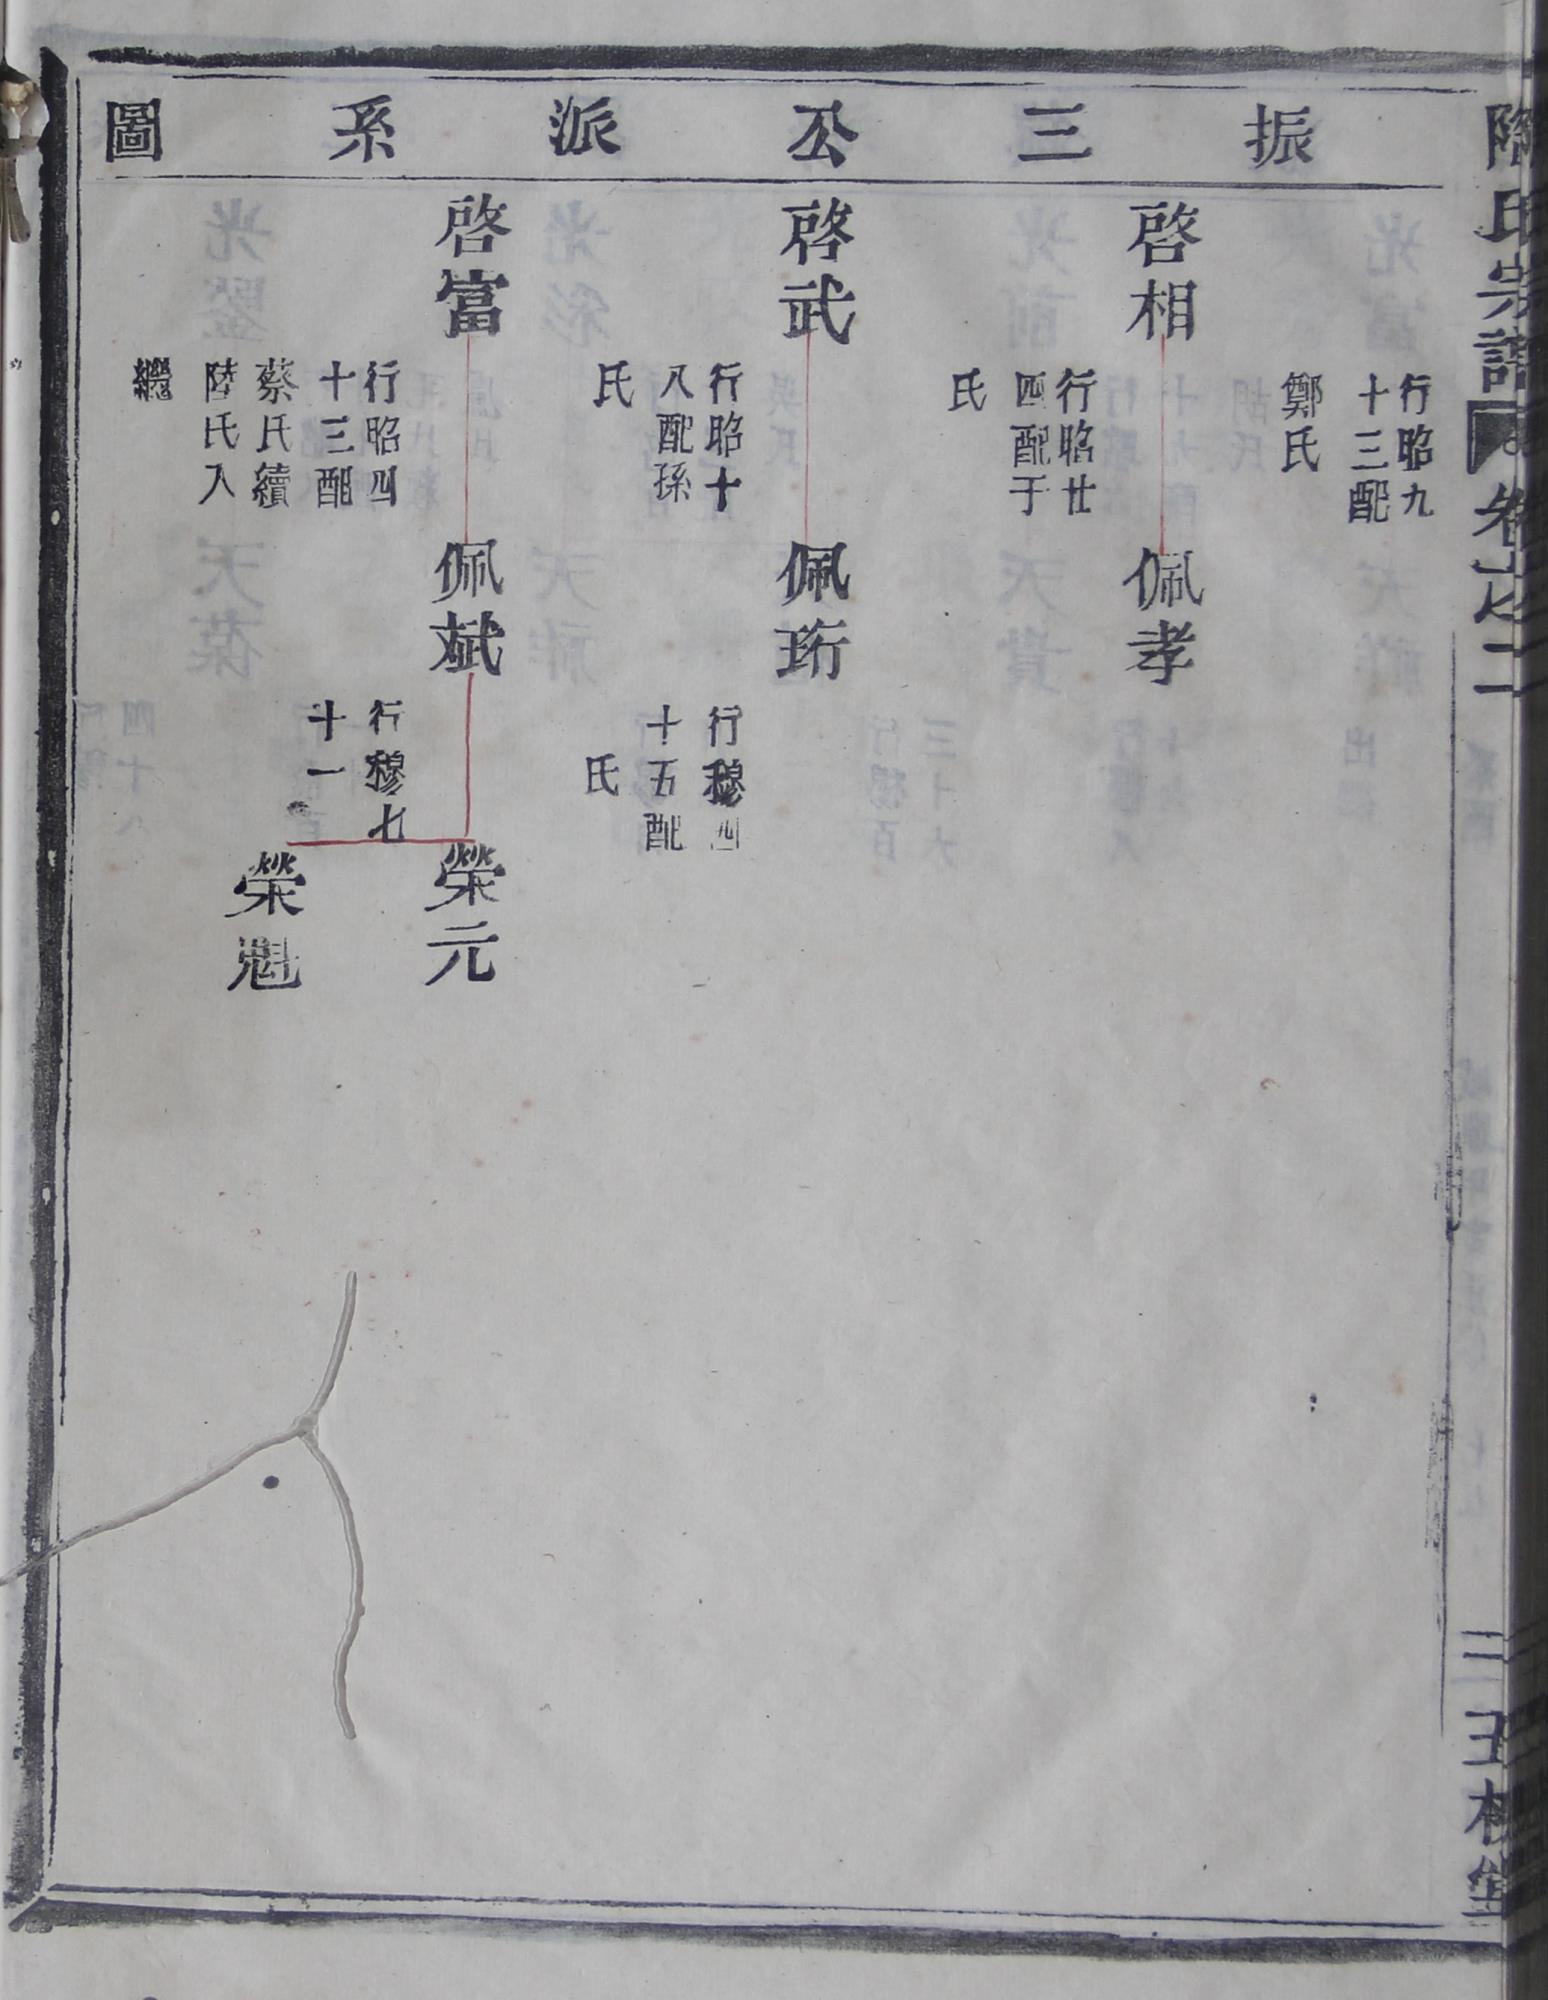 振三公派系圖
行昭九
十三配
鄭氏
啓相
佩孝
行昭廿
四配于
氏
啓武
行昭十
八配孫
氏
佩珩
行穆四
十五配
氏
啓富
行昭四
十三配
蔡氏續
陸氏入
繼
佩斌
行穆七
十一
榮元
榮魁
陶氏宗譜
卷之二
五柳堂